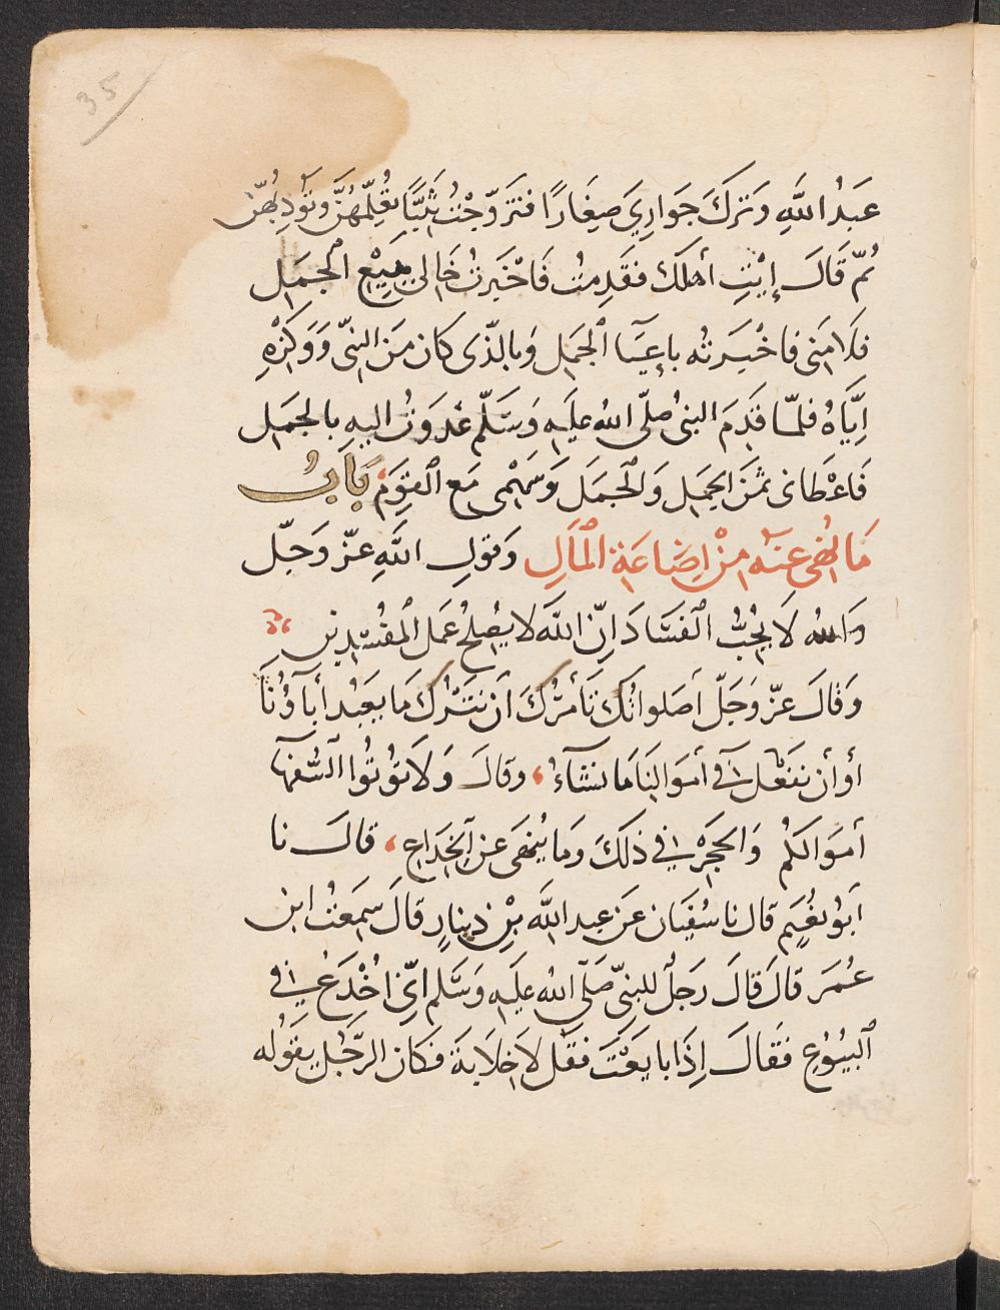 35
عَبْدُ اللَّهِ وَتَرَكَ جَوَارِيَ صِغَارًا فَتَزَوَّجْتُ ثَيِّبًا تُعَلِّمُهُنَّ وَتُؤَدِّبُهُنَّ
ثُمَّ قَالَ إِيْتِ أهلَكَ فَقَدِمتُ فَأَخْبَرتُ خَالى بِبَيْعِ الجمَلِ
فَلَامَنِى فاخْبَرتُه بإِعيَآ الجَمَلِ وَبالَّذى كان مِنَ النبىِّ وَوَكْزِهِ
اِيَّاهُ فلمّا قَدِمَ النبىُ صلّى اللهُ عليَهِ وَسَلّم غدَوتُ اليهِ بالجمَلِ
فَاعْطَانى ثمَنَ الجمَلِ وَالجمَلَ وَسَهْمِى مَع القَوَمْ، بَابُ
مَا نُهَى عنَه مِنْ اِضَاعَةِ المَالِ وَقولِ اللَّهِ عزّ وَجلّ
وَاللهُ لَا يُحِبُّ الفَسَادَ اِنّ اللَّهَ لا يصُلحُ عَمَل المفُسِدين
وَقالَ عزّ وَجَلّ أصَلواتُكَ تَأمرُكَ أن نَتْرُكَ مَا يعَبْد أباؤُنَا
أو أن نفعَلَ فى أموَالِنَا مَا نشَآءُ، وقالَ وَلَا تؤتُوا السُّفهَآ
أموَالكُم وَالحَجْرِ فى ذلكَ وَمَا يُنهَى عن الخِدَاعِ، قالَ نا
ابُو نعُيَم قال نا سُفيَان عَن عبد اللَّه بْنِ دينارٍ قالَ سَمِعتُ ابن
عُمَر قالَ قالَ رَجلٌ للنبىّ صَلّى اللهُ عليَهِ وَسَلّم اِنّى اُخْدَعُ فى
البُيُوْعِ فَقالَ اِذَا بايَعَتَ فقَلْ لاَ خِلَابةَ فكَان الرّجُل يقَولُه